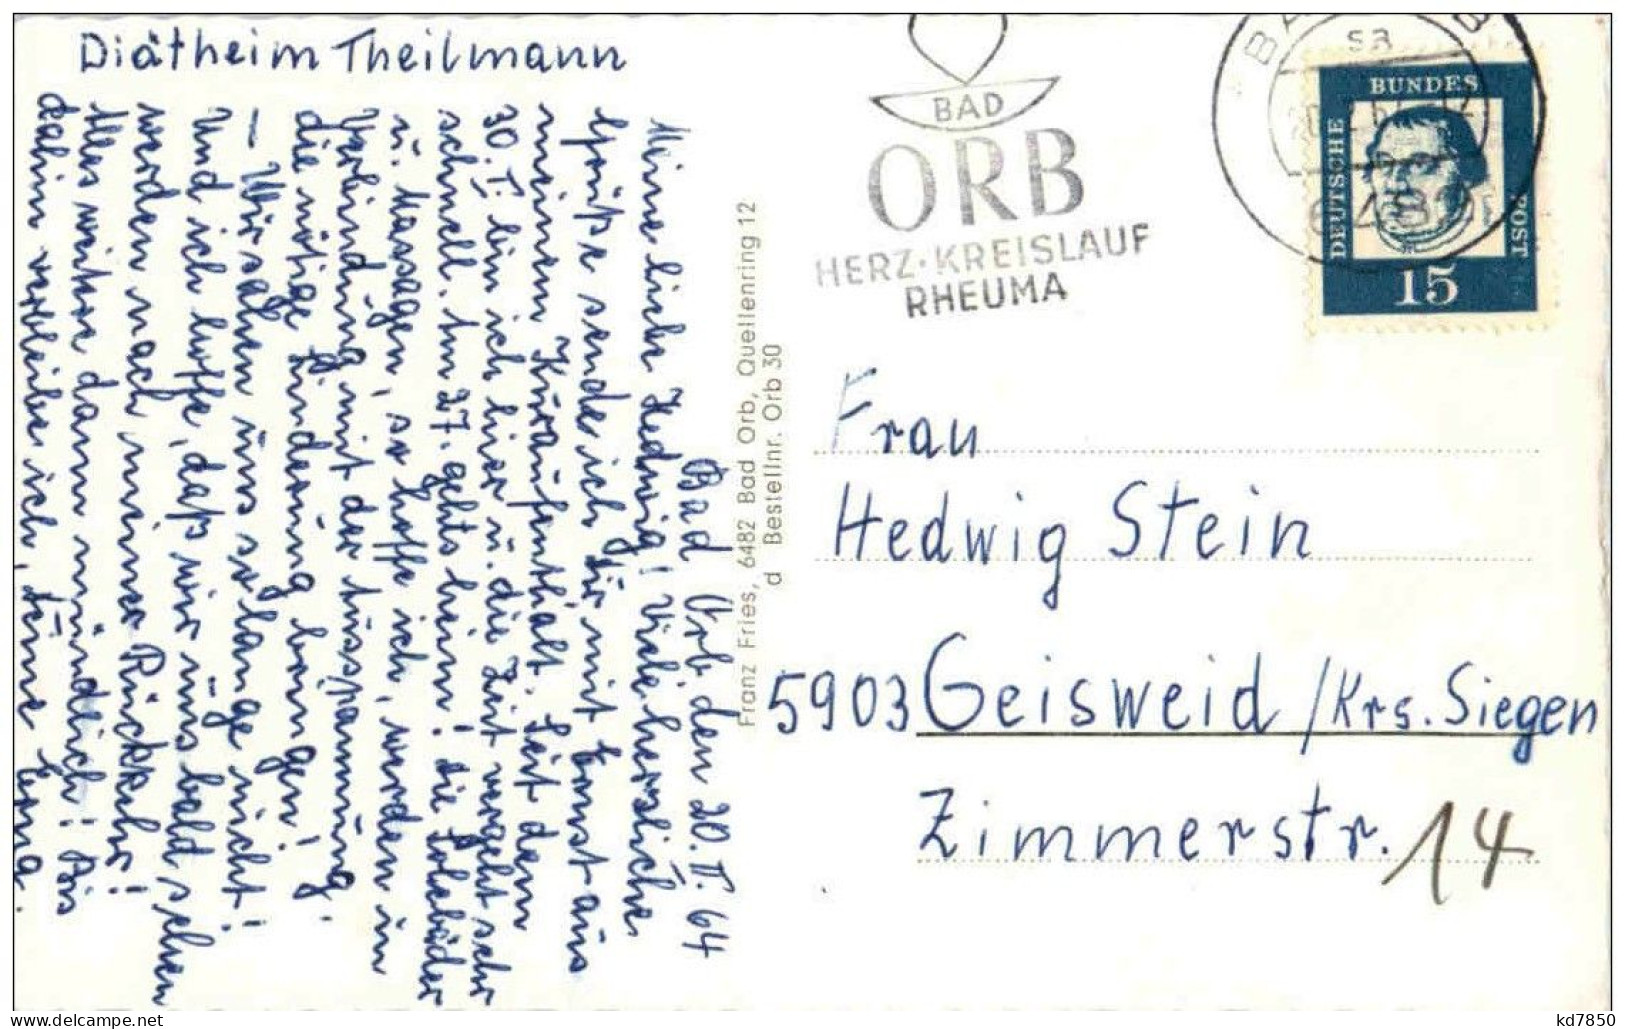 Diätheim Theilmann
Bad Orb, den 20. II. 64
Meine liebe Hedwig! Viele herzliche
Grüße sende ich Dir mit Ernst aus
meinem Kuraufenthalt. Seit dem
30. I. bin ich hier u. die Zeit vergeht sehr
schnell. Am 27. gehts heim! Die Solebäder
u. Massagen, so hoffe ich, werden in
Verbindung mit der Ausspannung
die nötige Linderung bringen!
– Wir sahen uns so lange nicht!
Und ich hoffe, daß wir uns bald sehen
werden nach meiner Rückkehr!
Alles weitere dann mündlich! Bis
dahin verbleibe ich, Deine Erna.
Franz Fries, 6482 Bad Orb, Quellenring 12
d Bestellnr. Orb 30
BAD
ORB
HERZ·KREISLAUF
RHEUMA
DEUTSCHE
BUNDES
POST
15
Frau
Hedwig Stein
5903 Geisweid /Krs. Siegen
Zimmerstr. 14
kd7850